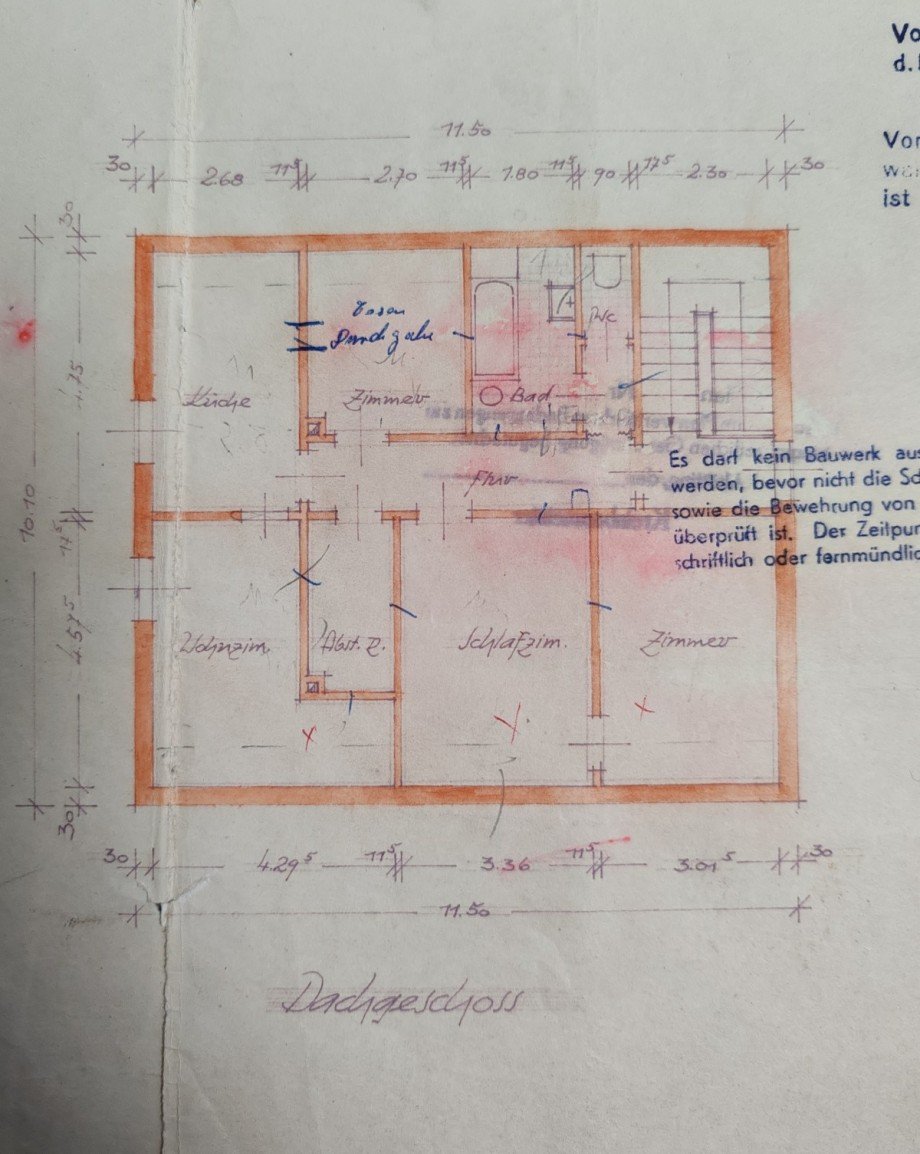 Vo
d.
Vor
ist
11.50
30 2.68 11⁵ 2.70 11⁵ 1.80 11⁵ 90 17⁵ 2.30 30
30
Durchgabe
WC
4.75
Küche
Zimmer
Bad
Es darf kein Bauwerk aus
werden, bevor nicht die Sc
sowie die Bewehrung von
überprüft ist. Der Zeitpur
schriftlich oder fernmündlic
Flur
10.10
17⁵
4.57⁵
Wohnzim.
Abst. R.
Schlafzim.
Zimmer
30
30 4.29⁵ 11⁵ 3.36 11⁵ 3.01⁵ 30
11.50
Dachgeschoss